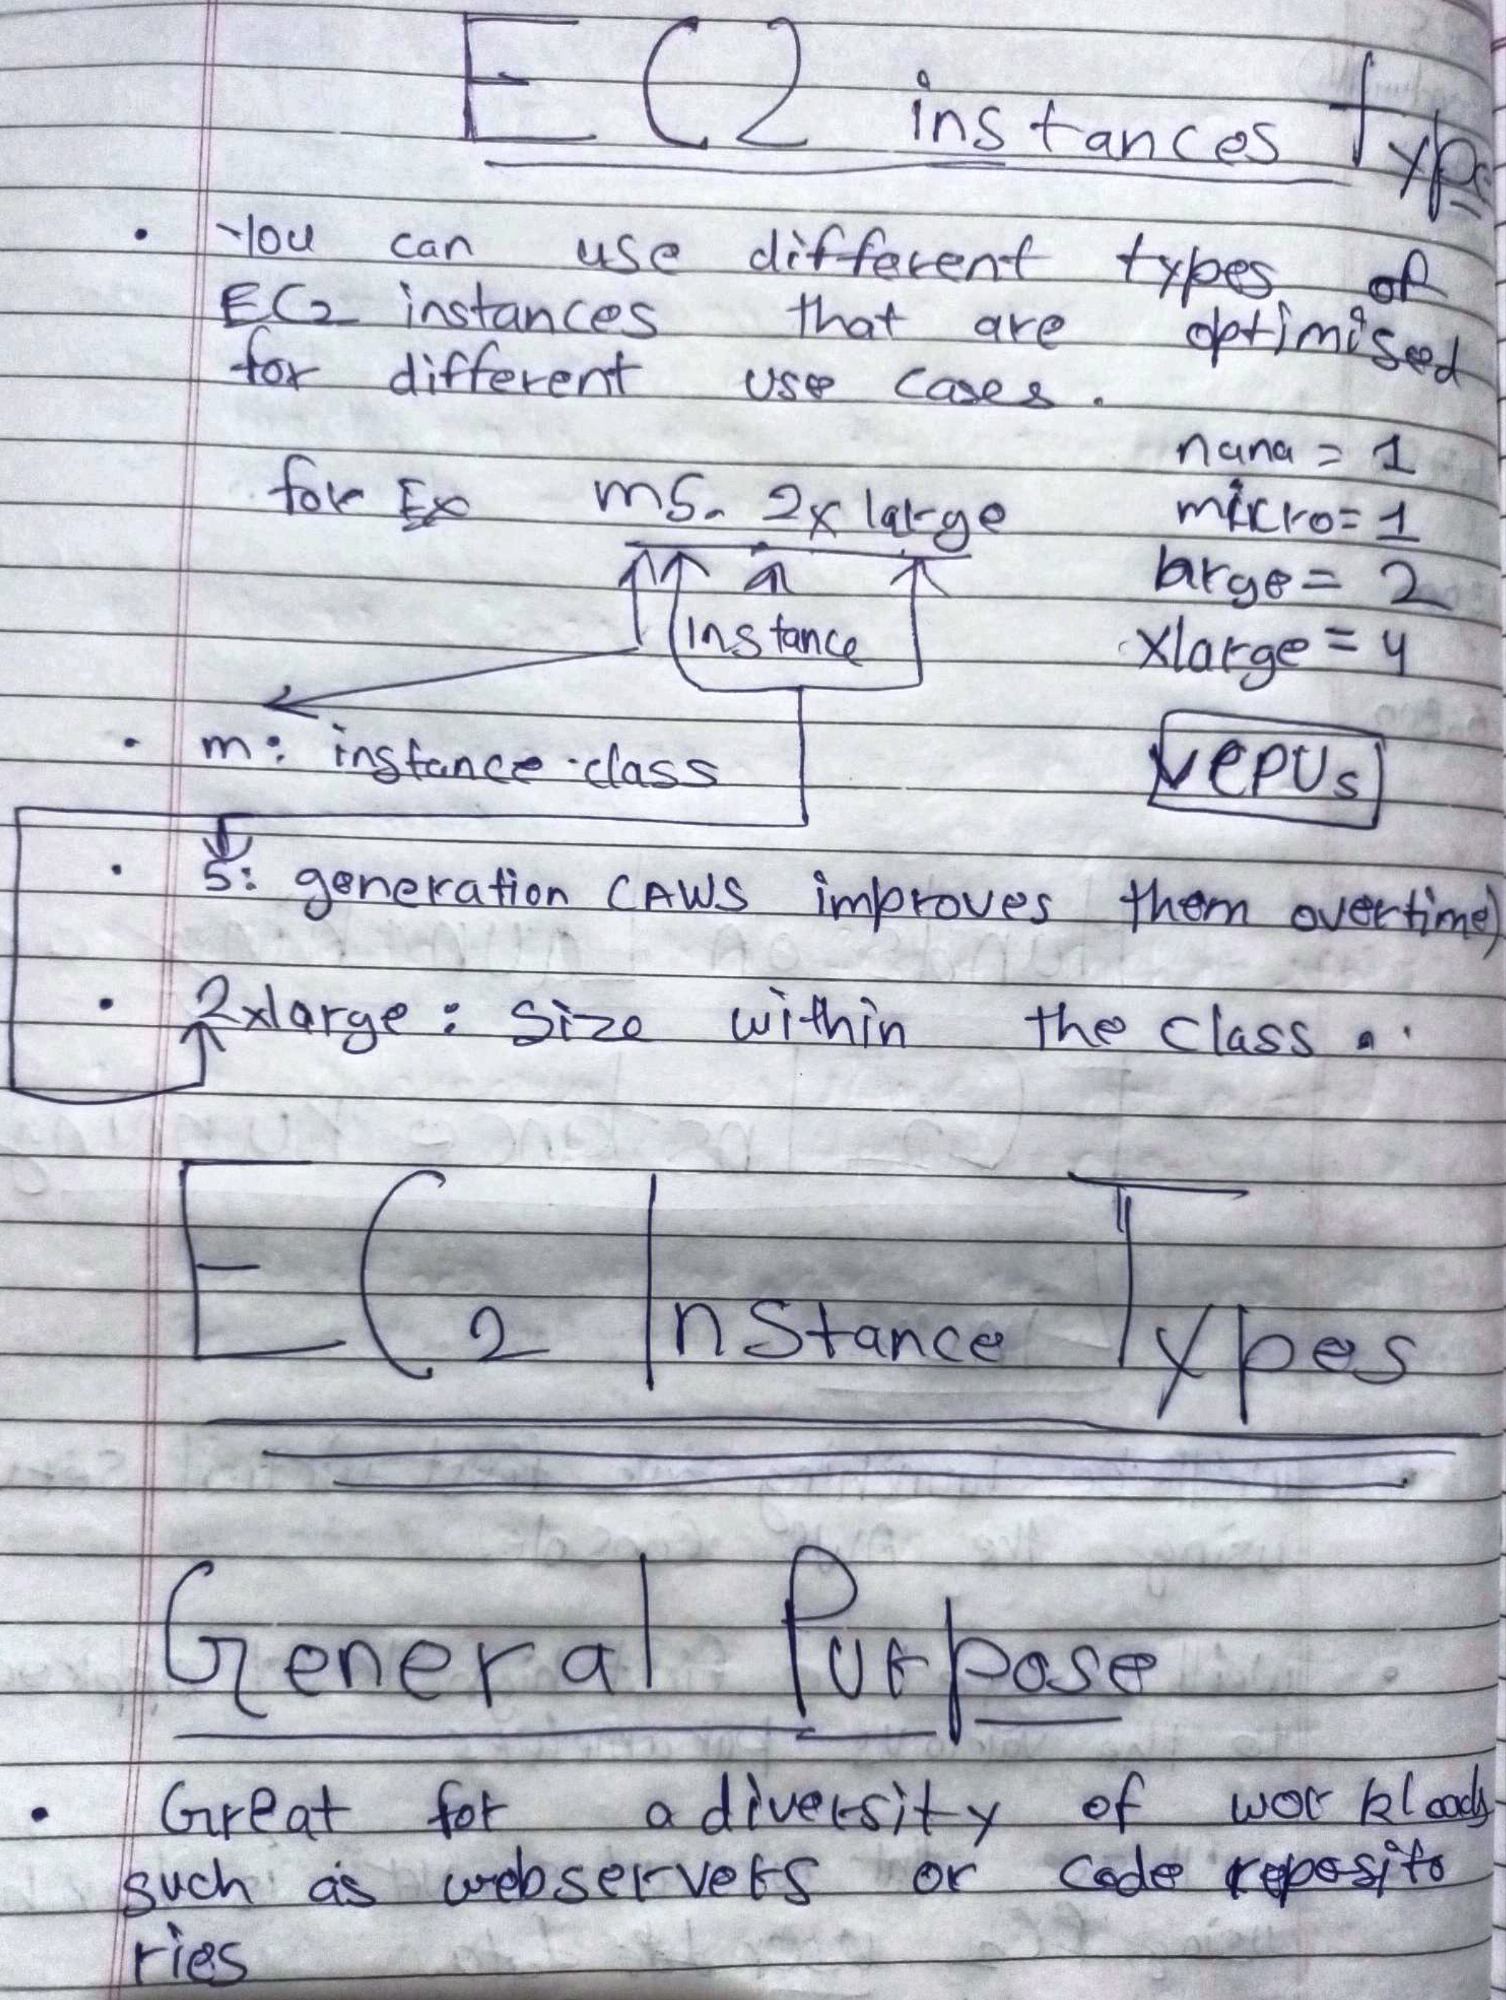 EC2 instances Type
• You can use different types of
EC2 instances that are optimised
for different use cases.
nana = 1
for Ex m5. 2x large
micro= 1
large = 2
Instance
xlarge = 4
• m: instance class
vCPUs
• 5: generation (AWS improves them overtime)
• 2xlarge : Size within the class .
EC2 Instance Types
General Purpose
• Great for a diversity of workloads
such as webservers or code reposito
ries